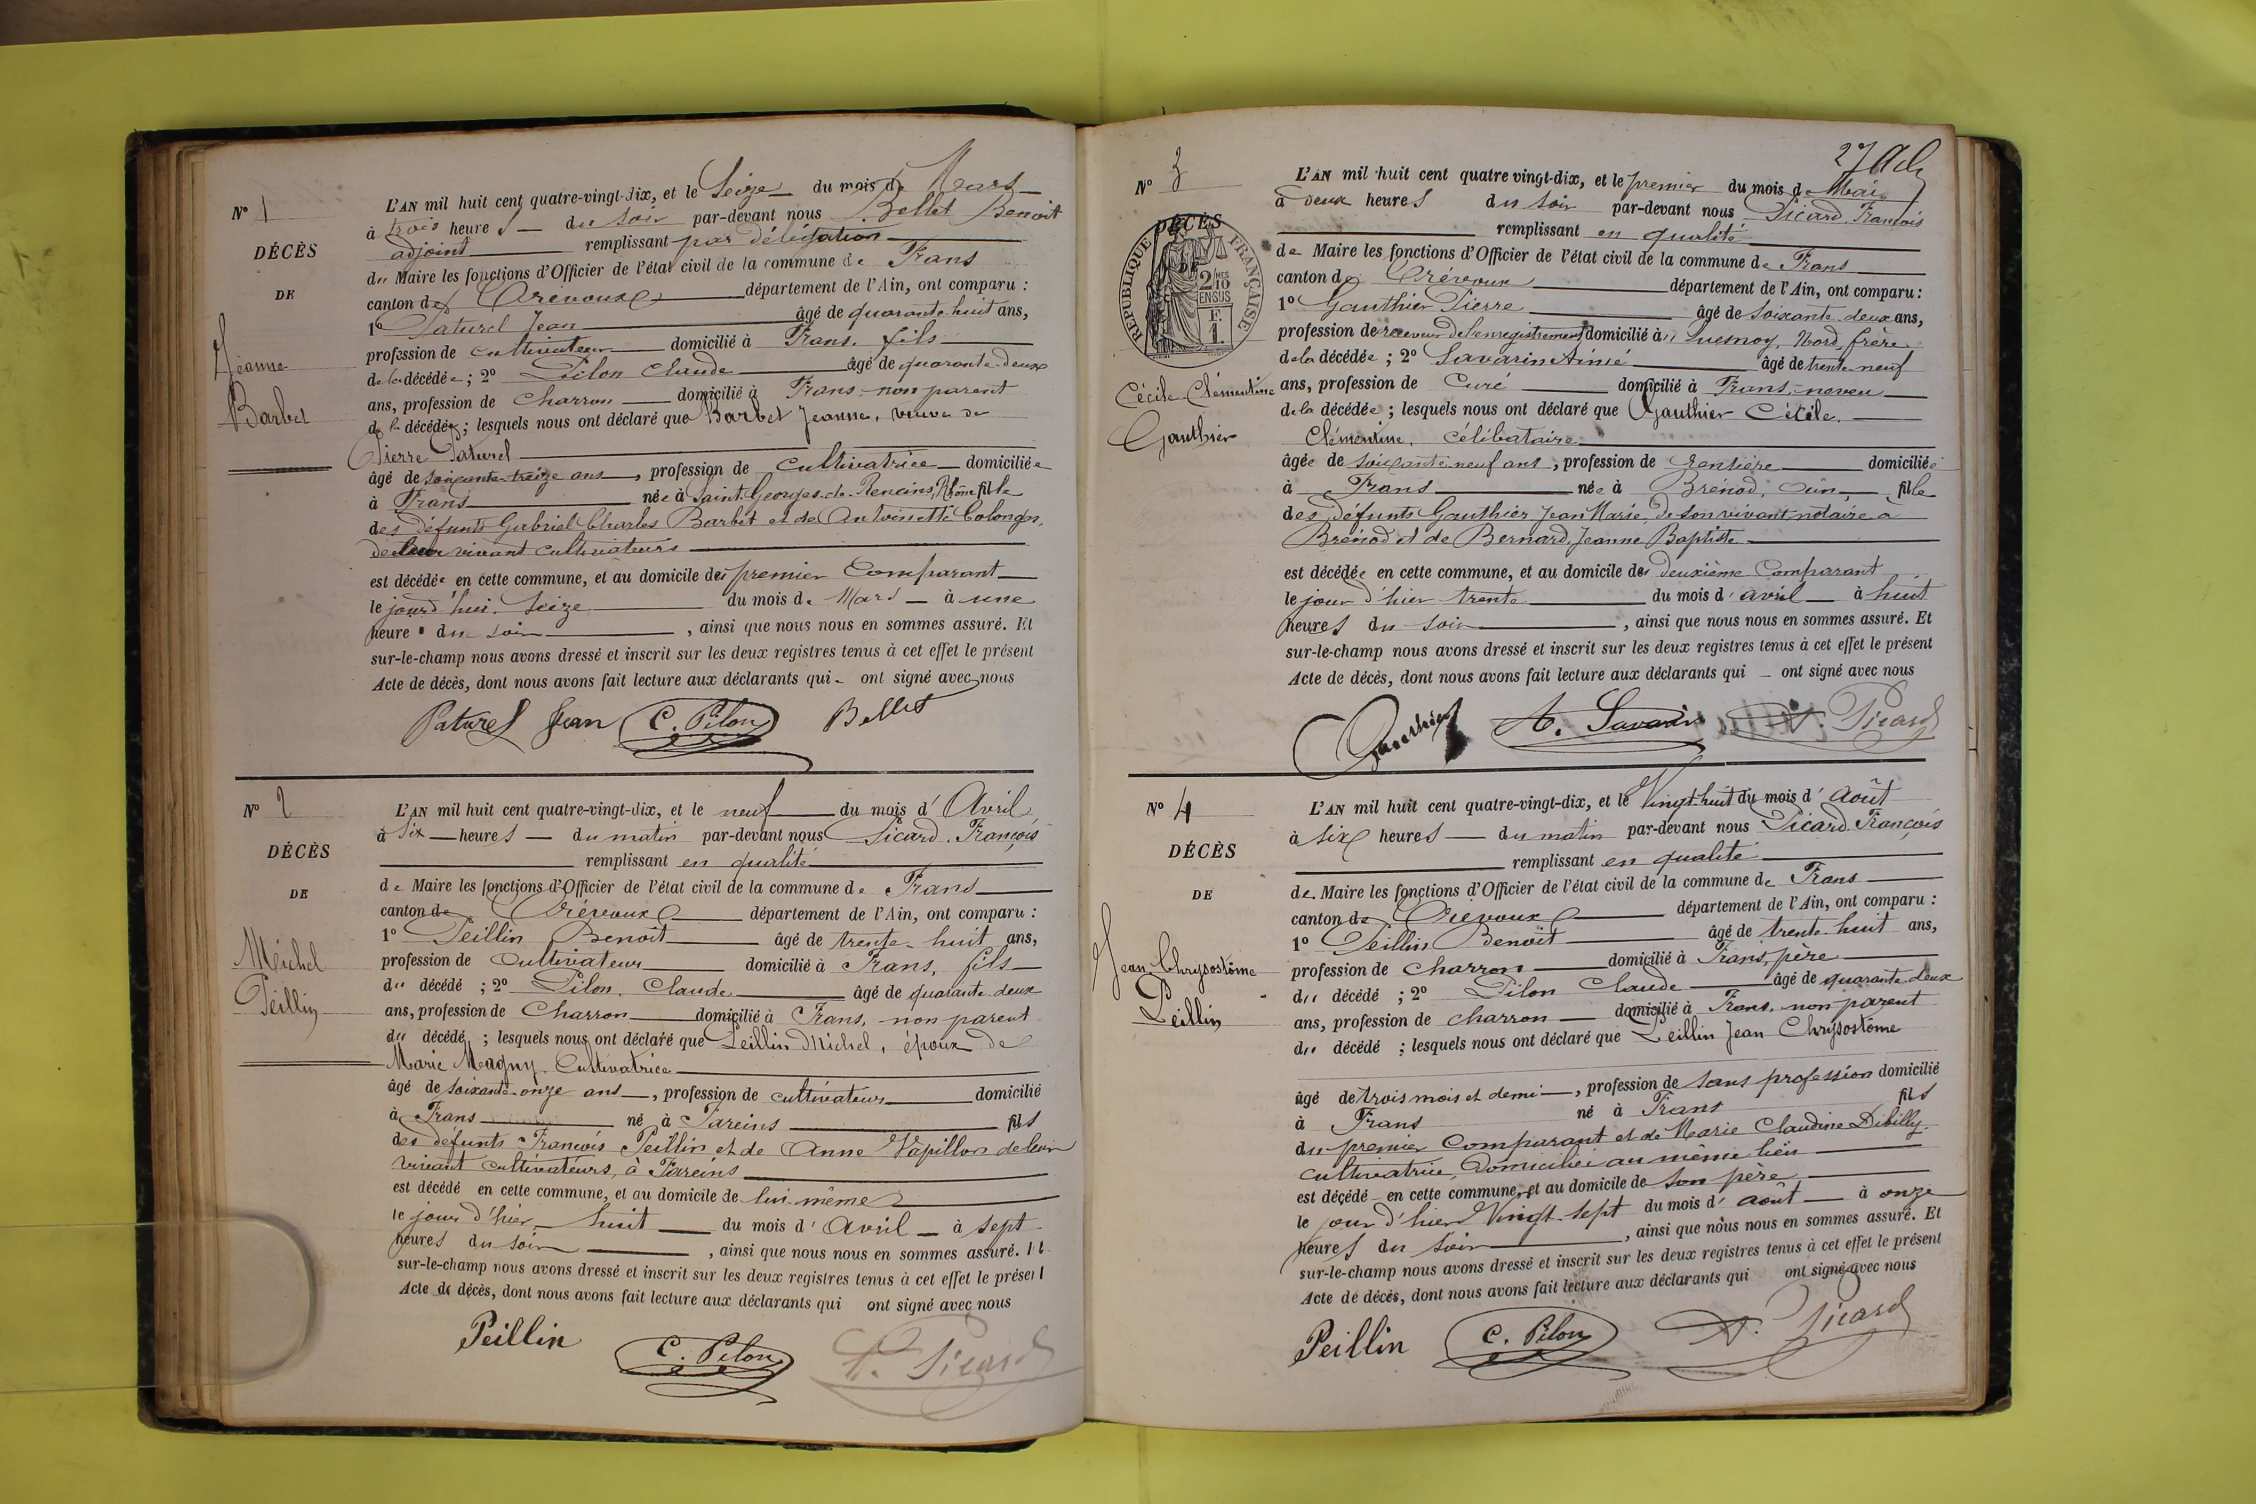 N° 1
DÉCÈS
DE
Jeanne
Barbet
L'AN mil huit cent quatre-vingt-dix, et le Seize du mois de Mars
à trois heures du soir par-devant nous Bellet Benoit
adjoint remplissant par délégation
du Maire les fonctions d'Officier de l'état civil de la commune de Frans
canton de Trévoux département de l'Ain, ont comparu :
1° Paturel Jean âgé de quarante-huit ans,
profession de cultivateur domicilié à Frans, fils
de la décédée ; 2° Pilon Claude âgé de quarante-deux
ans, profession de Charron domicilié à Frans - non parent
de la décédée ; lesquels nous ont déclaré que Barbet Jeanne, veuve de
Pierre Paturel
âgé de soixante-treize ans, profession de Cultivatrice domiciliée
à Frans née à Saint-Georges-de-Reneins, Rhône, fille
des défunts Gabriel Charles Barbet et de Antoinette
de leur vivant cultivateurs
est décédée en cette commune, et au domicile du premier Comparant
le jourd'hui Seize du mois de Mars à une
heure du soir, ainsi que nous nous en sommes assuré. Et
sur-le-champ nous avons dressé et inscrit sur les deux registres tenus à cet effet le présent
Acte de décès, dont nous avons fait lecture aux déclarants qui ont signé avec nous
Paturel Jean C. Pilon Bellet
N° 2
DÉCÈS
DE
Michel
Peillin
L'AN mil huit cent quatre-vingt-dix, et le neuf du mois d'Avril
à Six heures du matin par-devant nous Picard François
remplissant en qualité
de Maire les fonctions d'Officier de l'état civil de la commune de Frans
canton de Trévoux département de l'Ain, ont comparu :
1° Peillin Benoit âgé de trente-huit ans,
profession de Cultivateur domicilié à Frans, fils
du décédé ; 2° Pilon Claude âgé de quarante-deux
ans, profession de Charron domicilié à Frans, - non parent
du décédé ; lesquels nous ont déclaré que Peillin Michel, époux de
Marie Magny Cultivatrice
âgé de soixante-onze ans, profession de cultivateur domicilié
à Frans né à Fareins fils
des défunts François Peillin et de Anne Vapillon de leur
vivant cultivateurs, à Fareins
est décédé en cette commune, et au domicile de lui même
le jour d'hier huit du mois d'avril à sept
heures du soir, ainsi que nous nous en sommes assuré. Et
sur-le-champ nous avons dressé et inscrit sur les deux registres tenus à cet effet le présent
Acte de décès, dont nous avons fait lecture aux déclarants qui ont signé avec nous
Peillin C. Pilon F. Picard
27
N° 3
DÉCÈS
DE
RÉPUBLIQUE FRANÇAISE
2/10 EN SUS
F. 1.
Cécile Clémentine
Gauthier
L'AN mil huit cent quatre vingt-dix, et le premier du mois de Mai
à deux heures du soir par-devant nous Picard François
remplissant en qualité
de Maire les fonctions d'Officier de l'état civil de la commune de Frans
canton de Trévoux département de l'Ain, ont comparu :
1° Gauthier Pierre âgé de soixante-deux ans,
profession de receveur de l'enregistrement domicilié à Quesnoy, Nord, frère
de la décédée ; 2° Savarin Aimé âgé de trente neuf
ans, profession de Curé domicilié à Frans, neveu
de la décédée ; lesquels nous ont déclaré que Gauthier Cécile
Clémentine, célibataire
âgée de soixante-neuf ans, profession de rentière domiciliée
à Frans née à Brénod, Ain, fille
des défunts Gauthier Jean Marie, de son vivant notaire à
Brénod et de Bernard, Jeanne Baptiste
est décédée en cette commune, et au domicile du deuxième Comparant
le jour d'hier trente du mois d'avril à huit
heures du soir, ainsi que nous nous en sommes assuré. Et
sur-le-champ nous avons dressé et inscrit sur les deux registres tenus à cet effet le présent
Acte de décès, dont nous avons fait lecture aux déclarants qui ont signé avec nous
Gauthier A. Savarin F. Picard
N° 4
DÉCÈS
DE
Jean Chrysostôme
Peillin
L'AN mil huit cent quatre-vingt-dix, et le Vingt-huit du mois d'août
à six heures du matin par-devant nous Picard François
remplissant en qualité
de Maire les fonctions d'Officier de l'état civil de la commune de Frans
canton de Trévoux département de l'Ain, ont comparu :
1° Peillin Benoit âgé de trente-huit ans,
profession de Charron domicilié à Frans, père
du décédé ; 2° Pilon Claude âgé de quarante-deux
ans, profession de charron domicilié à Frans, non parent
du décédé ; lesquels nous ont déclaré que Peillin Jean Chrysostôme
âgé de trois mois et demi, profession de sans profession domicilié
à Frans né à Frans fils
du premier Comparant et de Marie Claudine Dibilly
cultivatrice, domiciliée au même lieu
est décédé en cette commune, et au domicile de son père
le jour d'hier Vingt-sept du mois d'août à onze
heures du soir, ainsi que nous nous en sommes assuré. Et
sur-le-champ nous avons dressé et inscrit sur les deux registres tenus à cet effet le présent
Acte de décès, dont nous avons fait lecture aux déclarants qui ont signé avec nous
Peillin C. Pilon F. Picard